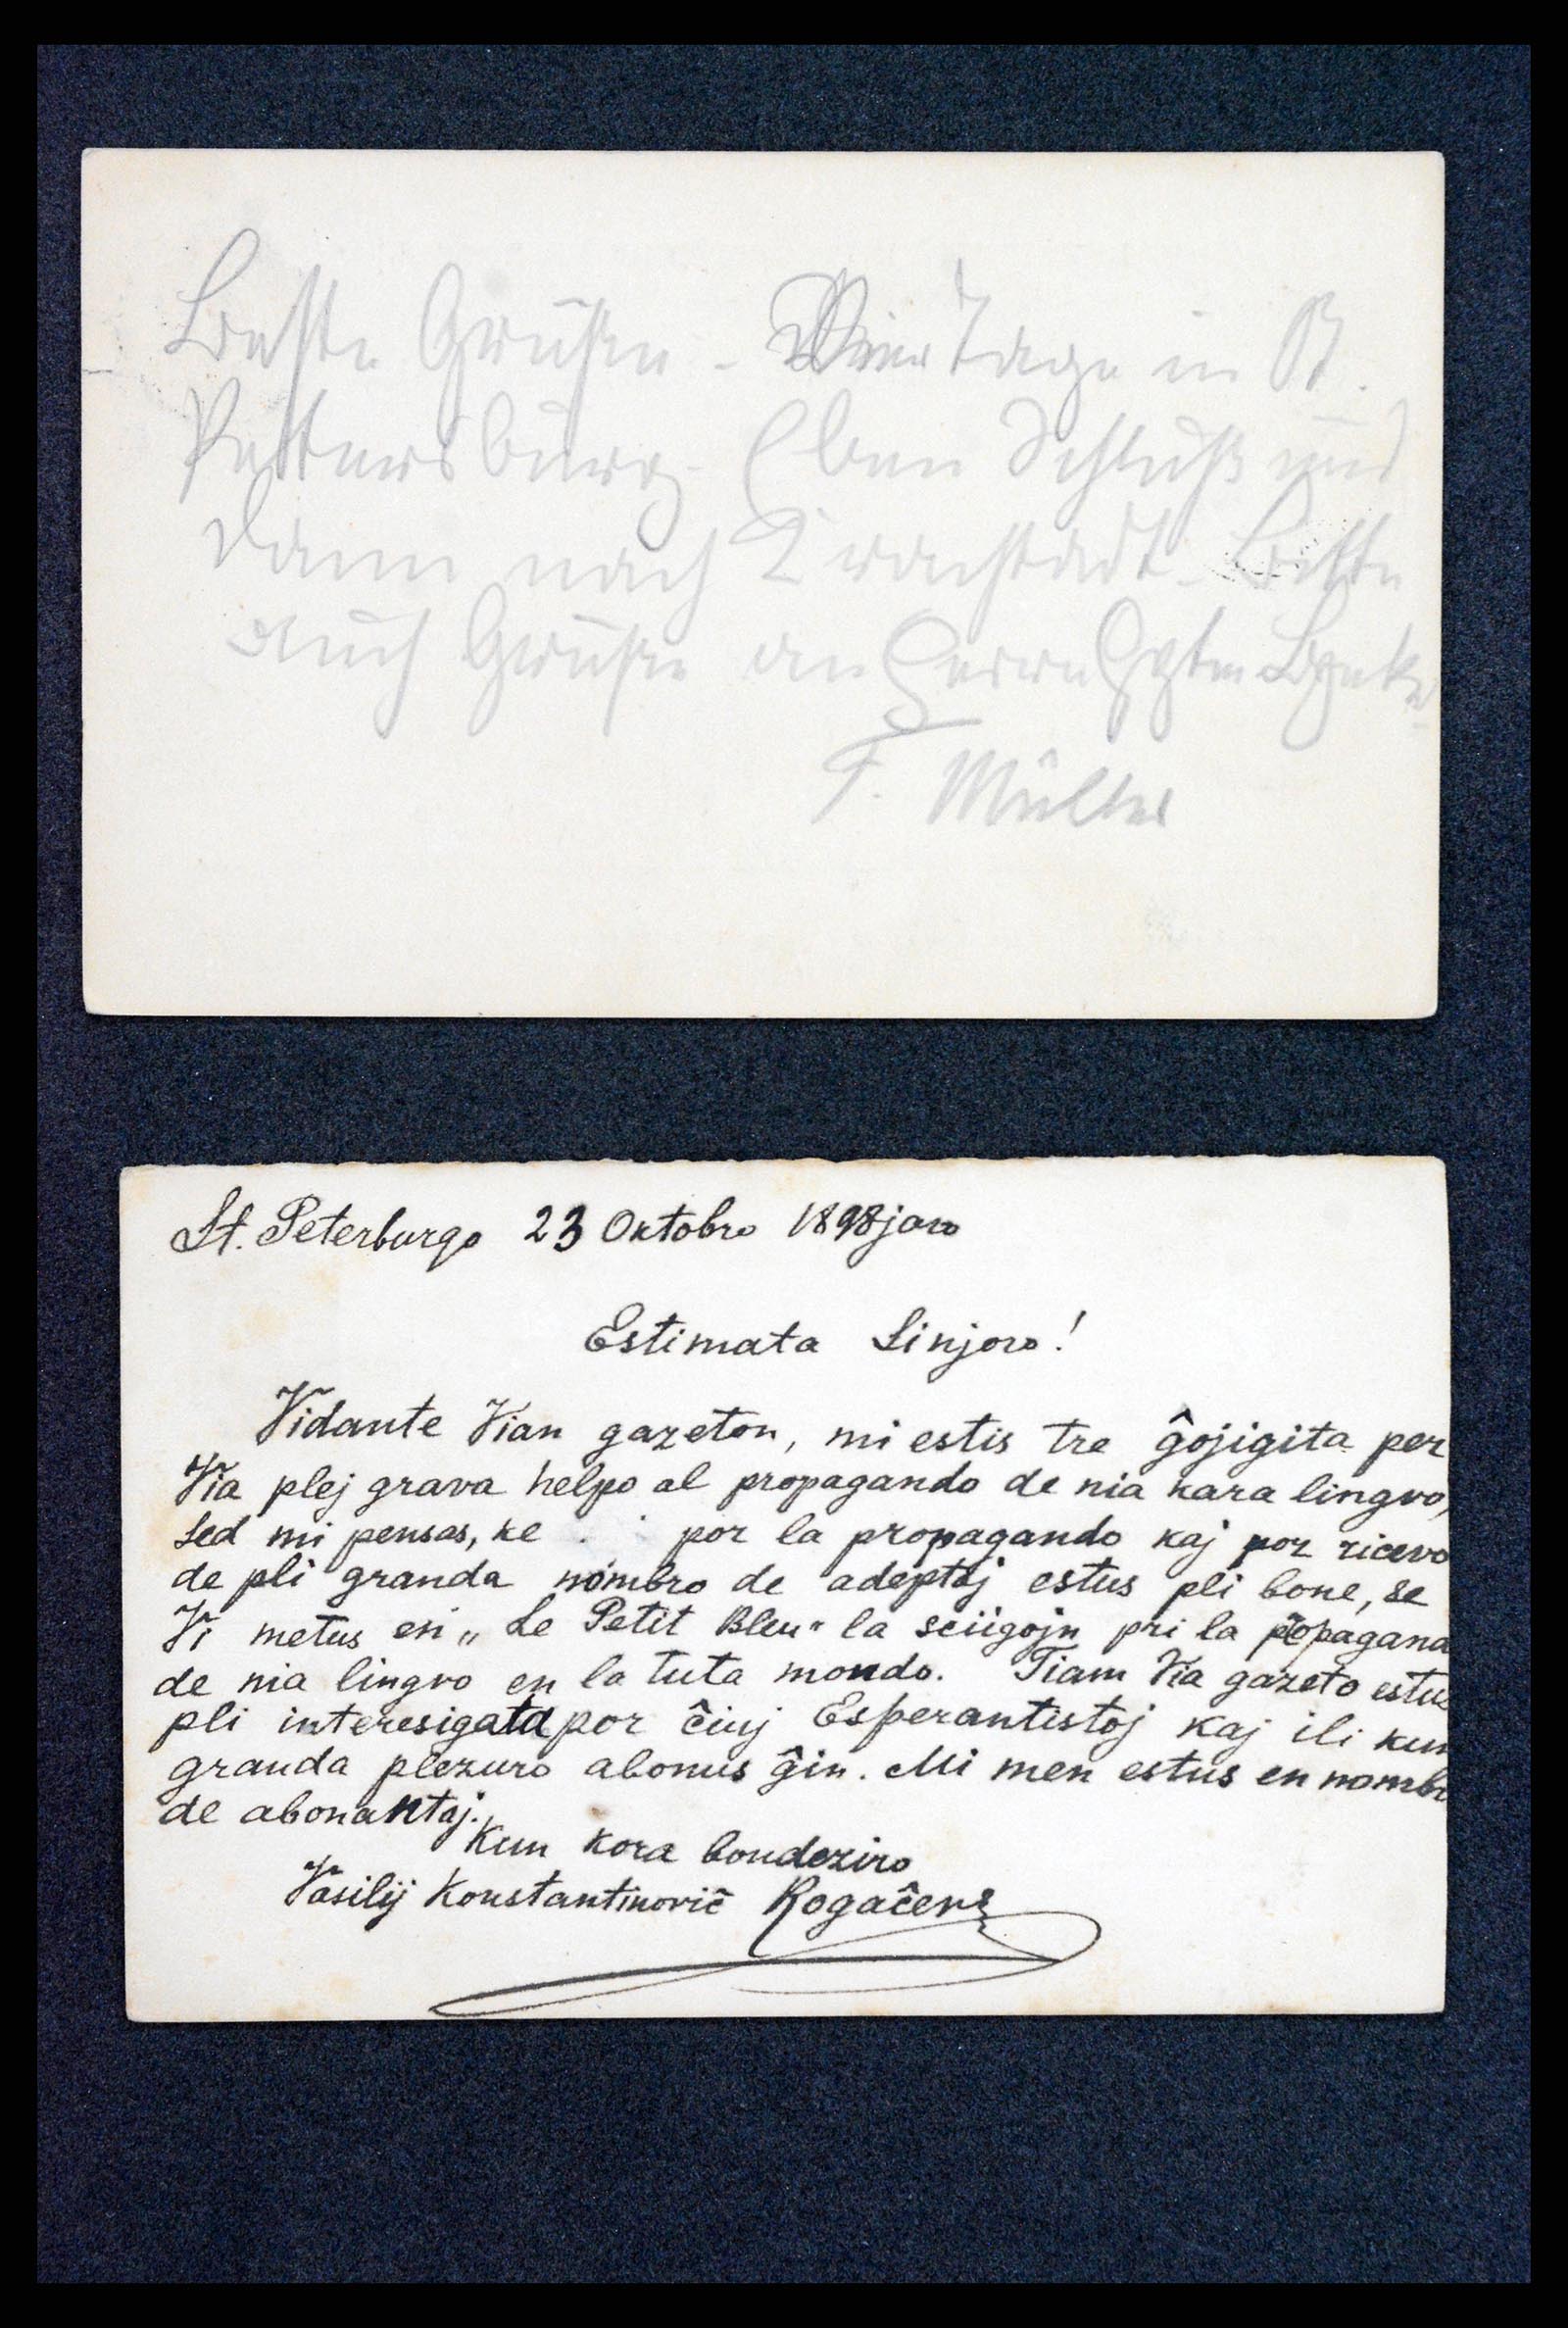 Beste Grüße - Vier Tage in St.
Pettersburg. Eben Schluß und
dann nach Kronstadt. Bitte
auch Grüße an Herrn Hptm
F. Müller
St. Peterburgo 23 Oktobro 1898 jaro
Estimata Sinjoro!
Vidante Vian gazeton, mi estis tre ĝojigita per
Via plej grava helpo al propagando de nia kara lingvo,
sed mi pensas, ke por la propagando kaj por ricevo
de pli granda nombro de adeptoj estus pli bone, se
Vi metus en „Le Petit Bleu" la sciigojn pri la propagand
de nia lingvo en la tuta mondo. Tiam Via gazeto estus
pli interesigata por ĉiuj Esperantistoj kaj ili kun
granda plezuro abonus ĝin. Mi men estus en nombr
de abonantoj.
Kun kora bondeziro
Vasilij Konstantinoviĉ Rogaĉevs